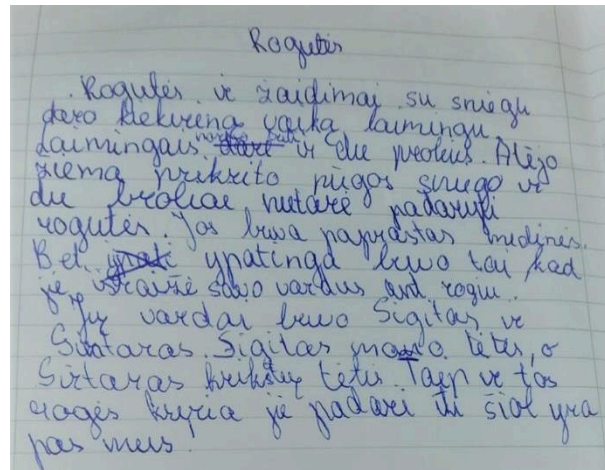 Rogutės
Rogutės ir žaidimai su sniegu
daro kiekvieną vaiką laimingu.
Laimingais norėjo būti ir du broliai. Atėjo
žiema prikrito pūgos sniego ir
du broliai nutarė padaryti
rogutės. Jos buvo paprastas medinės.
Bet ypatinga buvo tai kad
jie išraižė savo vardus ant rogių.
Jų vardai buvo Sigitas ir
Gintaras. Sigitas mano tėtis, o
Gintaras krikšto tėtis. Taip ir tos
rogės kurias jie padarė iki šiol yra
pas mus.